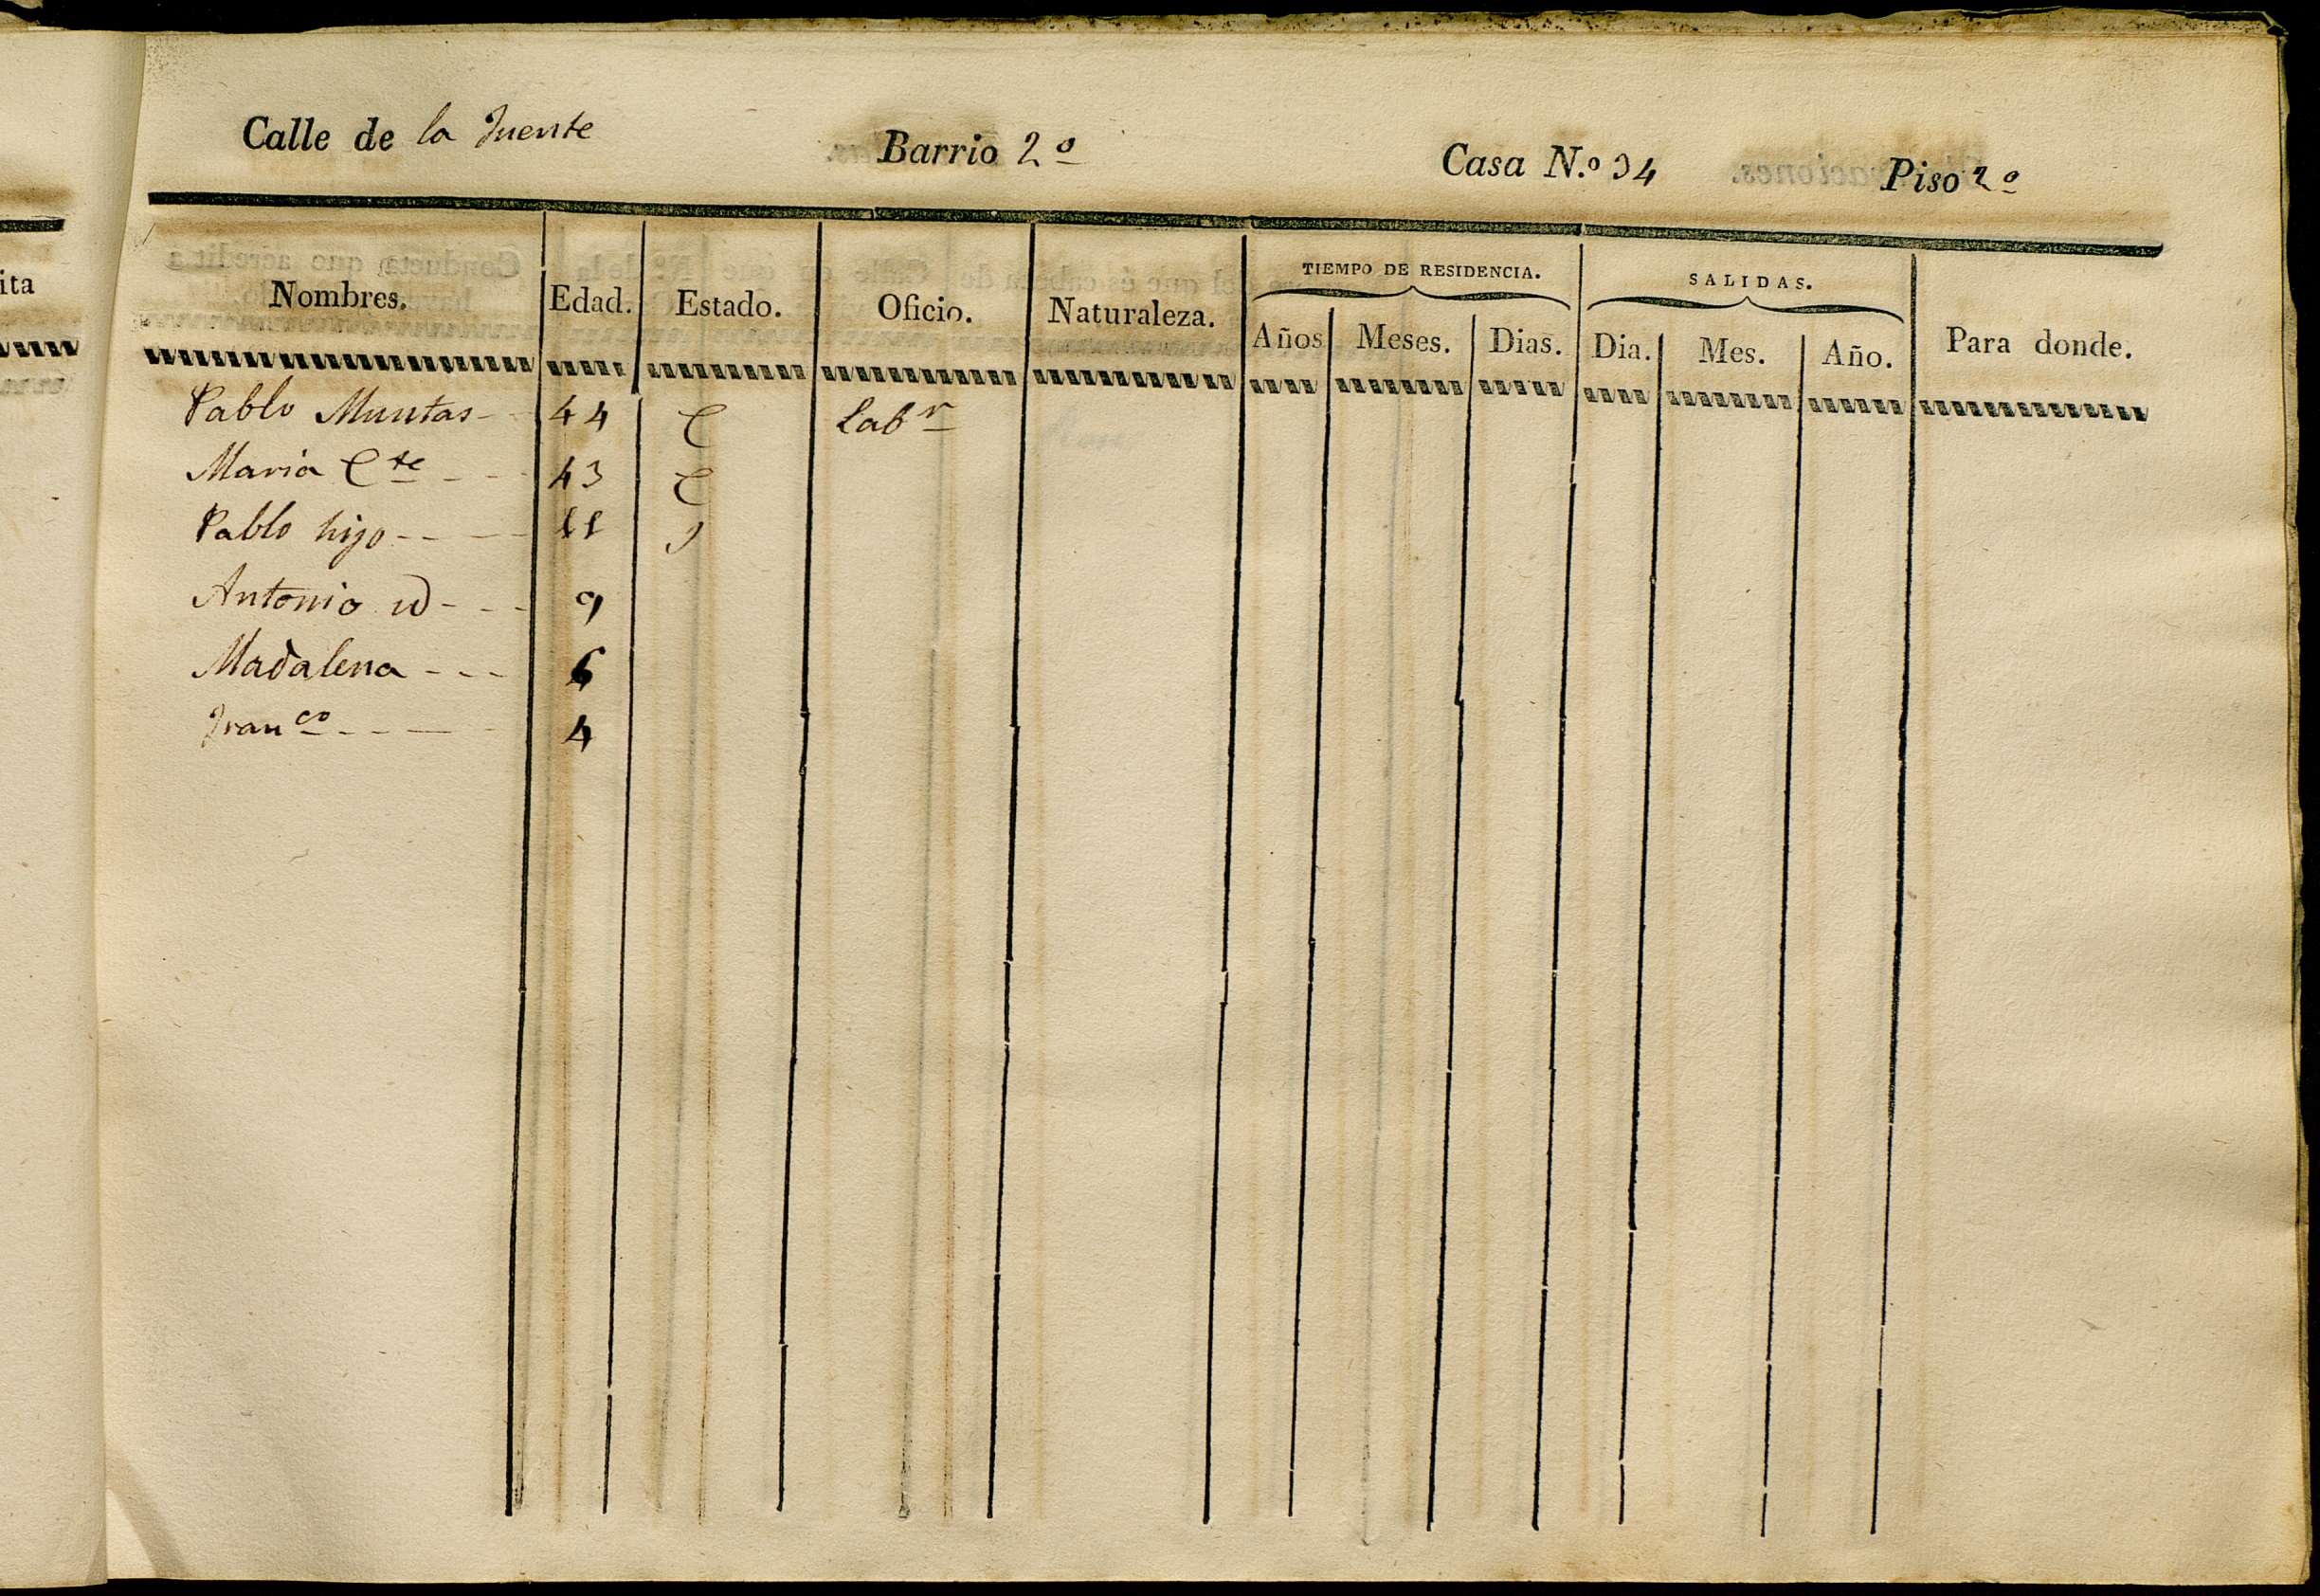 ita
Calle de la Fuente Barrio 2º Casa N.º 34 Piso 2º
Nombres. Edad. Estado. Oficio. Naturaleza. TIEMPO DE RESIDENCIA. SALIDAS. Para donde.
Años Meses. Dias. Dia. Mes. Año.
Pablo Muntas 44 C Labr
Maria Cte 43 C
Pablo hijo 11 S
Antonio id 9
Madalena 6
Franco 4